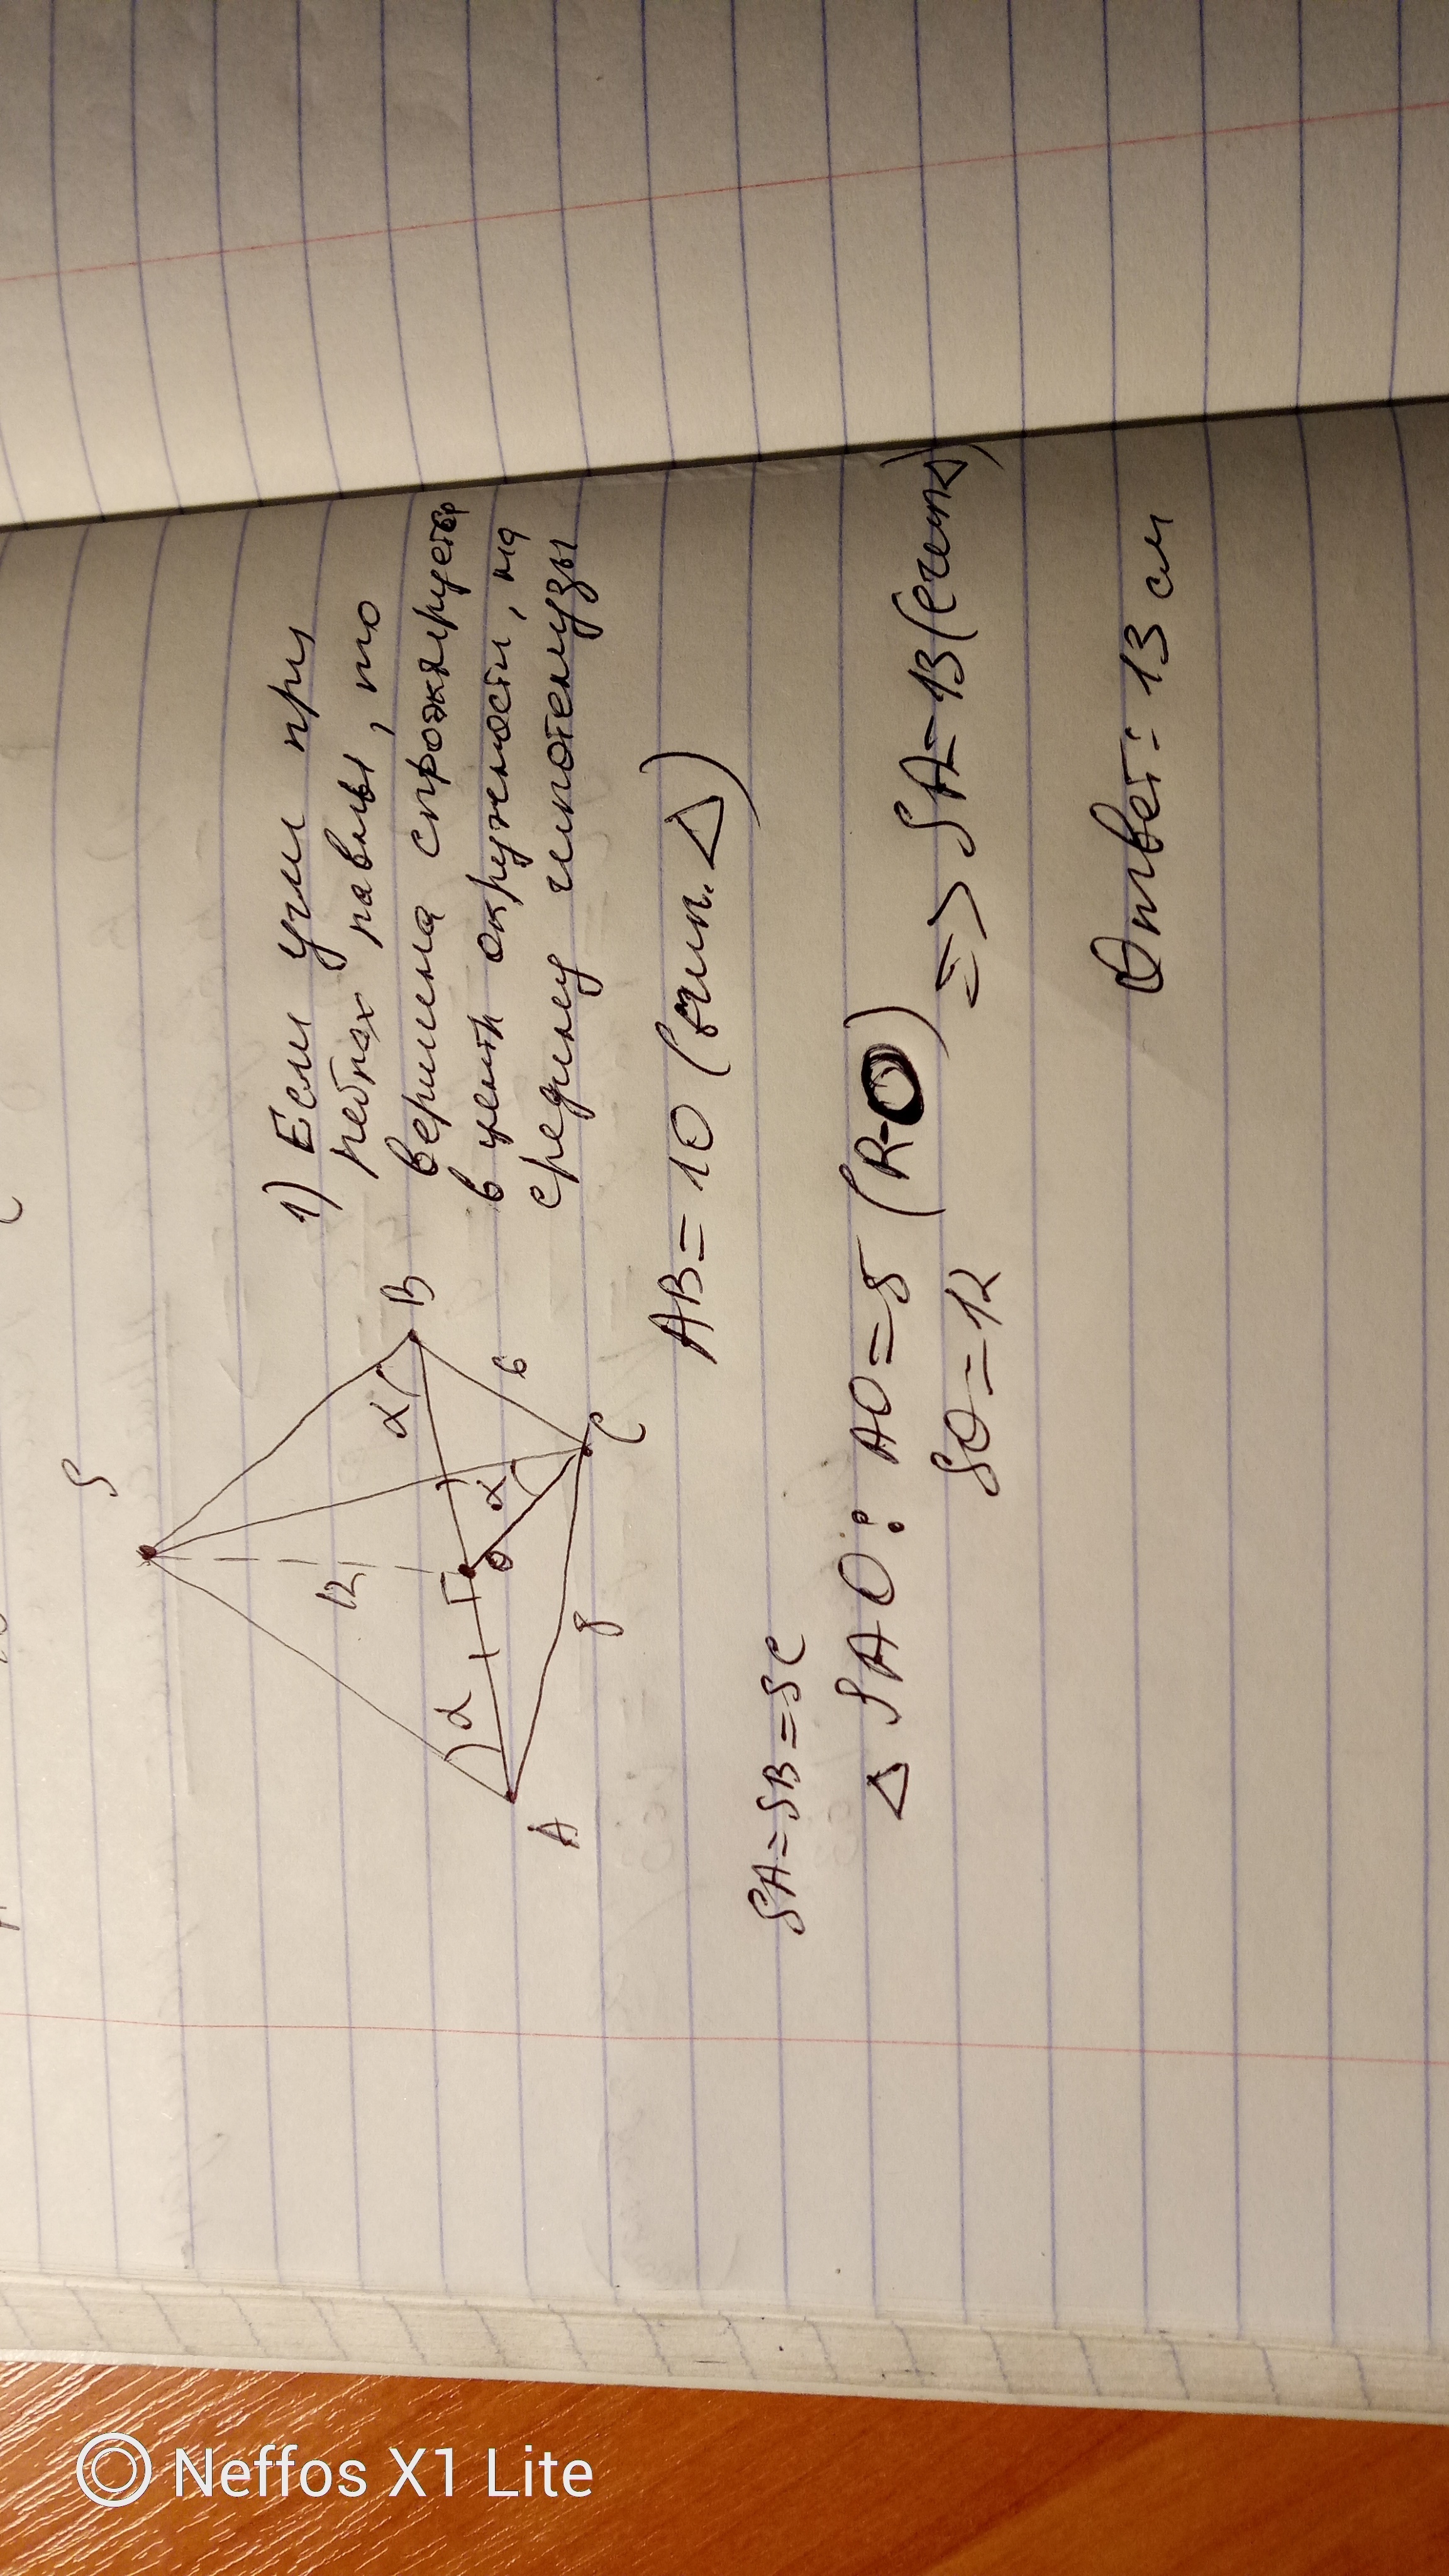 S
12
α
α
α
A
B
O
C
8
6
1) Если углы при
ребрах равны, то
вершина спроэкируется
в центр окружности, на
средину гипотенузы
AB = 10 (егип. △)
SA = SB = SC
△ SAO: AO = 5 (R-O)
SO = 12
=> SA = 13 (египт)
Ответ: 13 см
Neffos X1 Lite